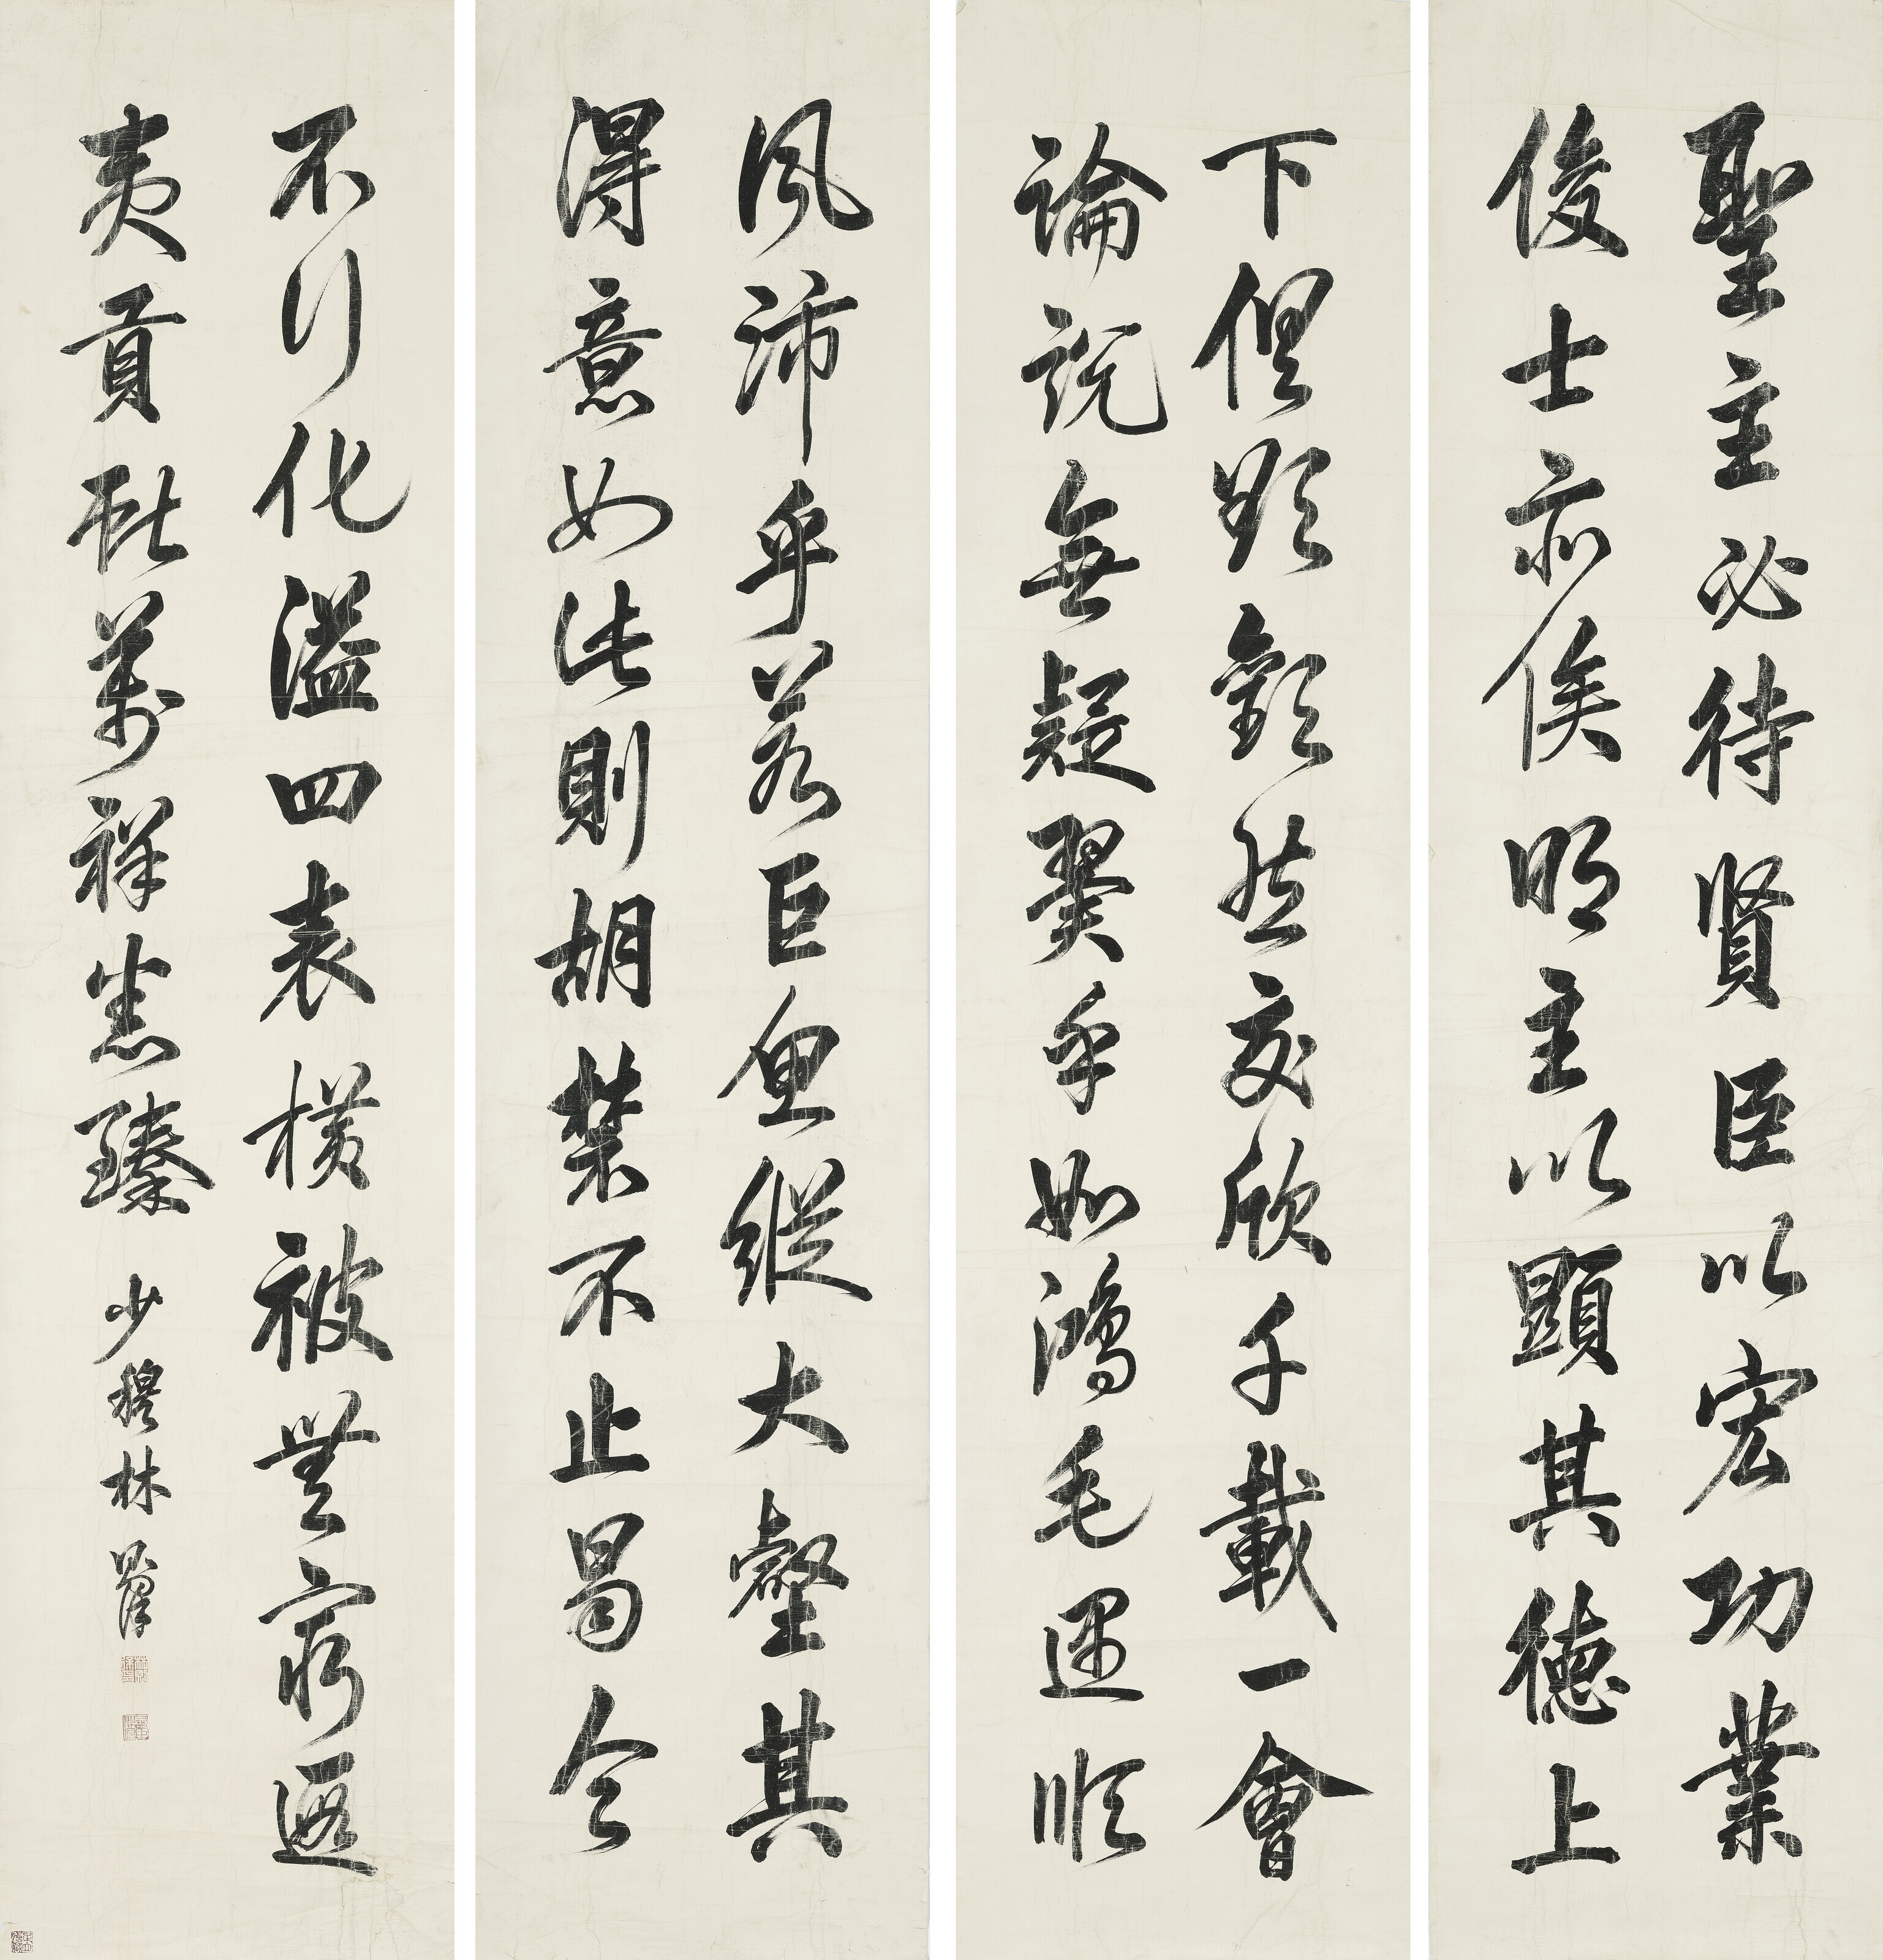 聖主必待賢臣以宏功業
俊士亦俟明主以顯其德上
下俱歡然交欣千載一會
論說無疑翼乎如鴻毛遇順
風沛乎若巨魚縱大壑其
得意如此則胡禁不止曷令
不行化溢四表橫被無窮遐
夷貢獻萬祥畢臻
少穆林則徐